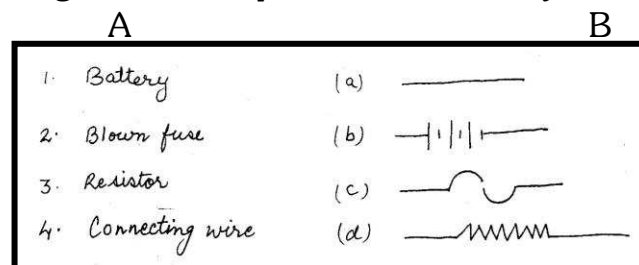 A B
1. Battery (a)
2. Blown fuse (b)
3. Resistor (c)
4. Connecting wire (d)